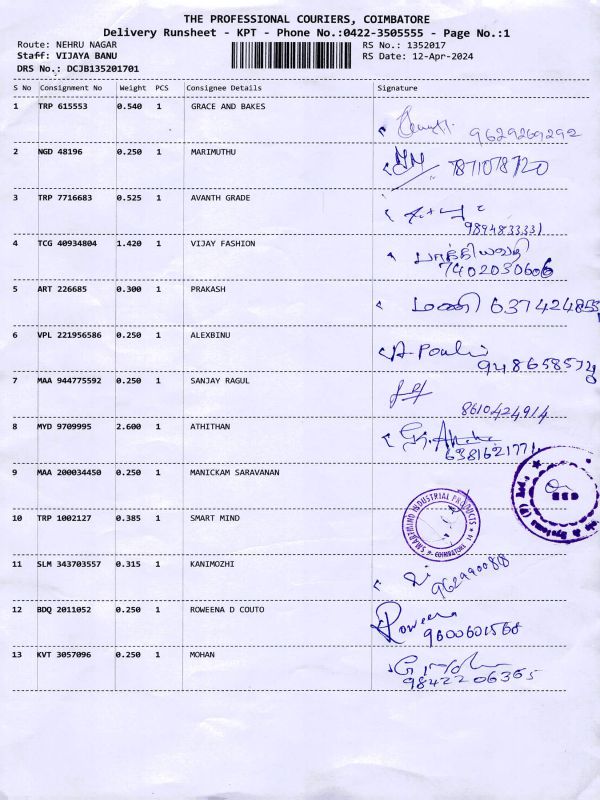 THE PROFESSIONAL COURIERS, COIMBATORE
Delivery Runsheet - KPT - Phone No.:0422-3505555 - Page No.:1
Route: NEHRU NAGAR RS No.: 1352017
Staff: VIJAYA BANU RS Date: 12-Apr-2024
DRS No.: DCJB135201701
S No Consignment No Weight PCS Consignee Details Signature
1 TRP 615553 0.540 1 GRACE AND BAKES
9629269292
2 NGD 48196 0.250 1 MARIMUTHU
7871078720
3 TRP 7716683 0.525 1 AVANTH GRADE
9894833331
4 TCG 40934804 1.420 1 VIJAY FASHION
7402030606
5 ART 226685 0.300 1 PRAKASH
மணி 637424853
6 VPL 221956586 0.250 1 ALEXBINU
7 MAA 944775592 0.250 1 SANJAY RAGUL
8610424914
8 MYD 9709995 2.600 1 ATHITHAN
6381621771
9 MAA 200034450 0.250 1 MANICKAM SARAVANAN
10 TRP 1002127 0.385 1 SMART MIND
INDUSTRIAL PRODUCTS
COIMBATORE
11 SLM 343703557 0.315 1 KANIMOZHI
12 BDQ 2011052 0.250 1 ROWEENA D COUTO
Roweena
9600601568
13 KVT 3057096 0.250 1 MOHAN
9842206365